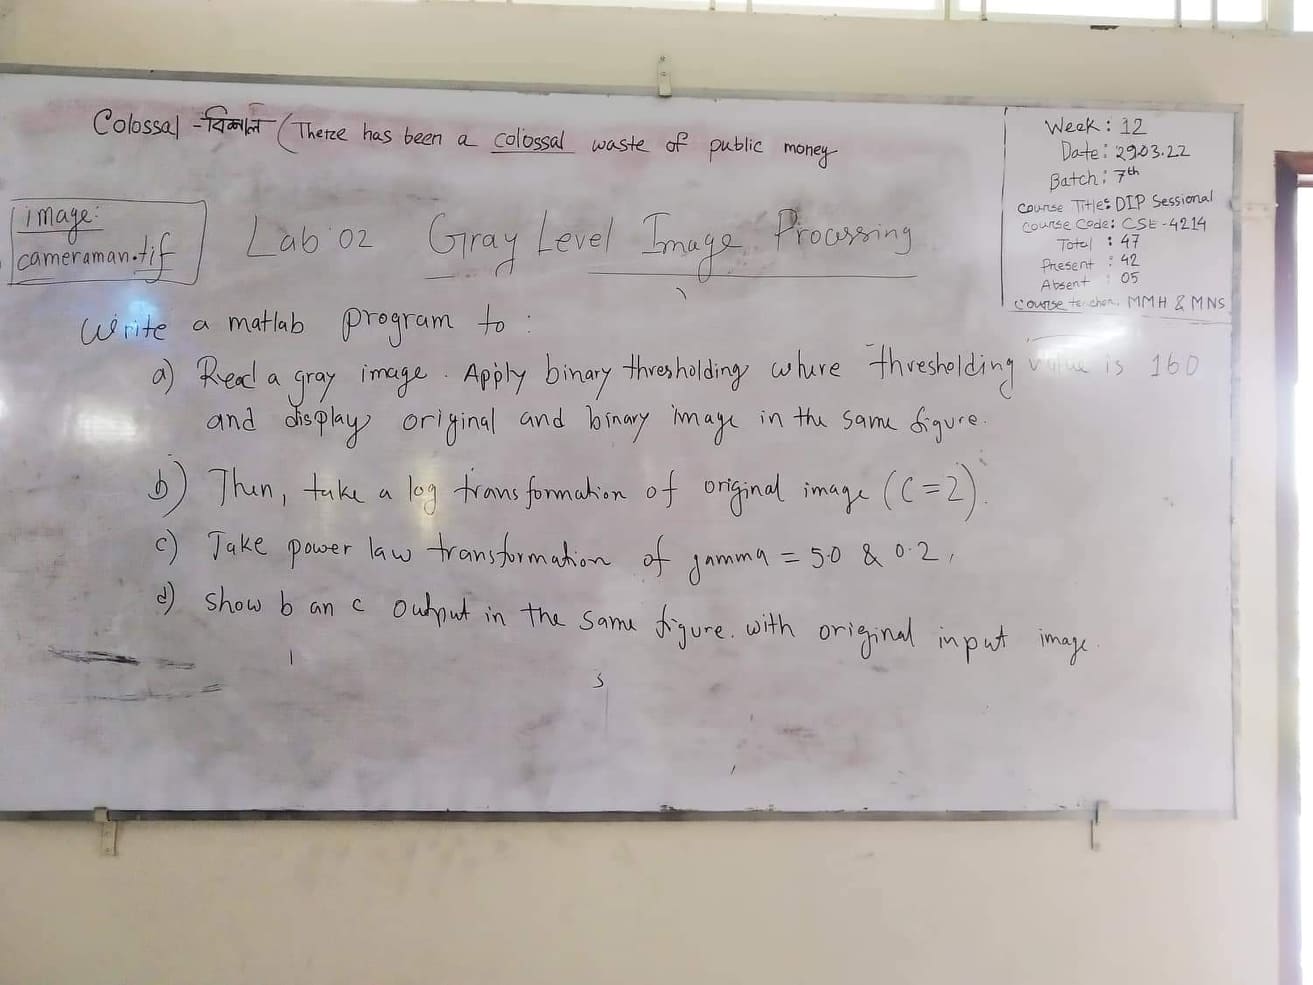 Colossal - বিশাল (There has been a colossal waste of public money
Week: 12
Date: 29.03.22
Batch: 7th
Course Title: DIP Sessional
Course Code: CSE-4214
Total : 47
Present : 42
Absent : 05
Course teacher: MMH & MNS
image:
cameraman.tif
Lab 02 Gray Level Image Processing
Write a matlab program to :
a) Read a gray image. Apply binary thresholding where thresholding value is 160
and display original and binary image in the same figure.
b) Then, take a log transformation of original image (C=2).
c) Take power law transformation of gamma = 5.0 & 0.2,
d) Show b an c output in the same figure. with original input image.